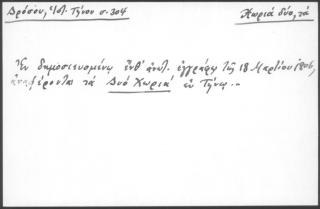 Δρόσου, Ἱστ. Τήνου σ. 304
Χωριά δύο, τά
Ἐν δημοσιευομένῳ ἐνθ' ἀνωτ. ἐγγράφῳ τῆς 18 Μαρτίου
ἀναφέρονται τά Δυό Χωριά ἐν Τήνῳ.-